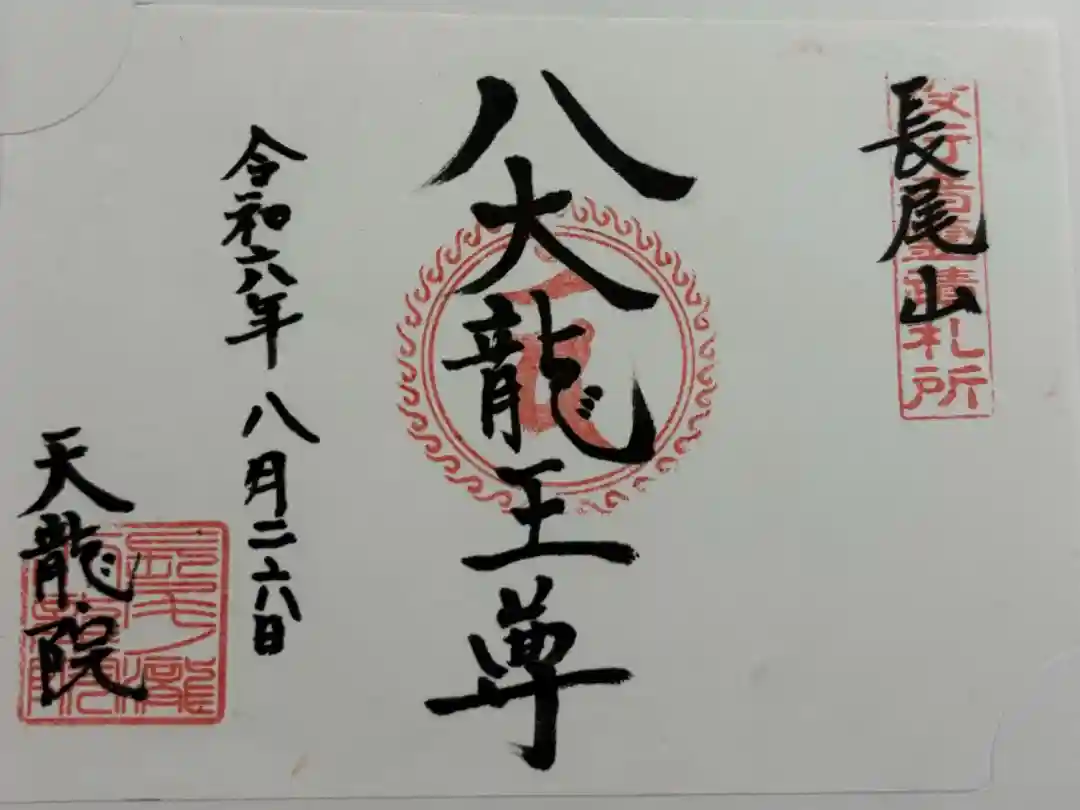 長尾山
札所
八大龍王尊
令和六年八月二六日
天龍院